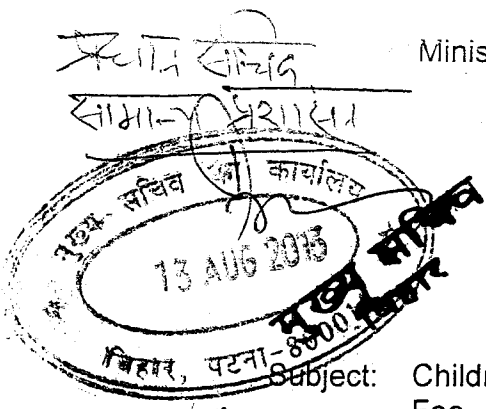 प्रधान सचिव
सामान्य प्रशासन
Minis
मुख्य सचिव का कार्यालय
13 AUG 2015
मुख्य सचिव
बिहार
बिहार, पटना-80001
Subject: Childr